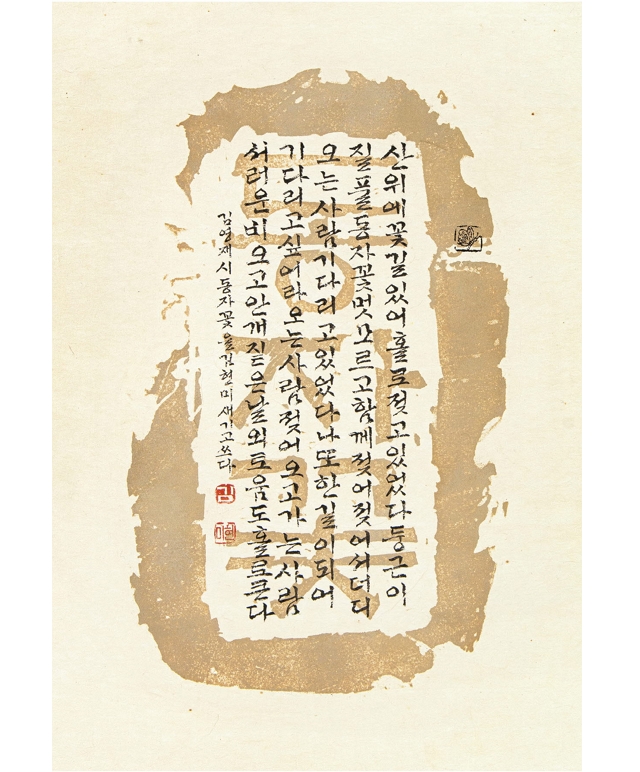 산위에꽃길있어홀로젖고있었다둥근이
질풀동자꽃멋모르고함께젖어젖어서더디
오는사람기다리고있었다나또한길이되어
기다리고싶어라오는사람젖어오고가는사람
서러운비오고안개짙은날외로움도홀로큰다
김영재시동자꽃을김현미새기고쓰다
김
현미
동자꽃